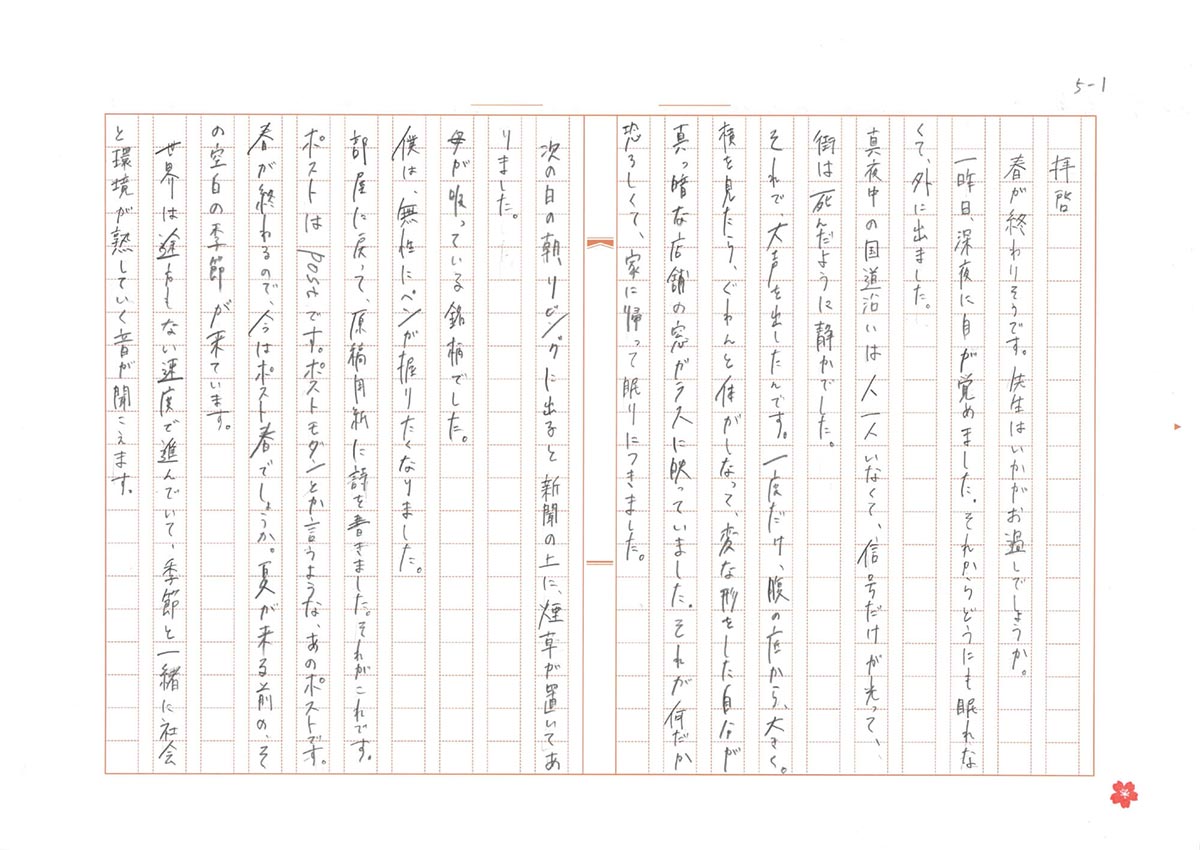 5-1
拝啓
春が終わりそうです。先生はいかがお過しでしょうか。
一昨日、深夜に目が覚めました。それからどうにも眠れな
くて、外に出ました。
真夜中の国道沿いは人一人いなくて、信号だけが光って、
街は死んだように静かでした。
それで、大声を出したんです。一度だけ、腹の底から、大きく。
横を見たら、ぐわんと体がしなって、変な形をした自分が
真っ暗な店舗の窓ガラスに映っていました。それが何だか
恐ろしくて、家に帰って眠りにつきました。
次の日の朝、リビングに出ると新聞の上に、煙草が置いてあ
りました。
母が吸っている銘柄でした。
僕は、無性にペンが握りたくなりました。
部屋に戻って、原稿用紙に詩を書きました。それがこれです。
ポストはpostです。ポストモダンとか言うような、あのポストです。
春が終わるので、今はポスト春でしょうか。夏が来る前の、そ
の空白の季節が来ています。
世界は途方もない速度で進んでいて、季節と一緒に社会
と環境が熟していく音が聞こえます。